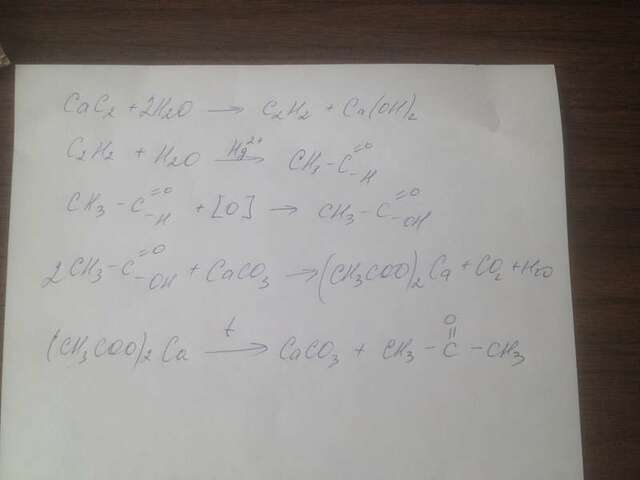 CaC₂ + 2H₂O → C₂H₂ + Ca(OH)₂
C₂H₂ + H₂O —Hg²⁺→ CH₃ - C =O - H
CH₃ - C =O - H + [O] → CH₃ - C =O - OH
2CH₃ - C =O - OH + CaCO₃ → (CH₃COO)₂ Ca + CO₂ + H₂O
(CH₃COO)₂ Ca —t→ CaCO₃ + CH₃ - C =O - CH₃